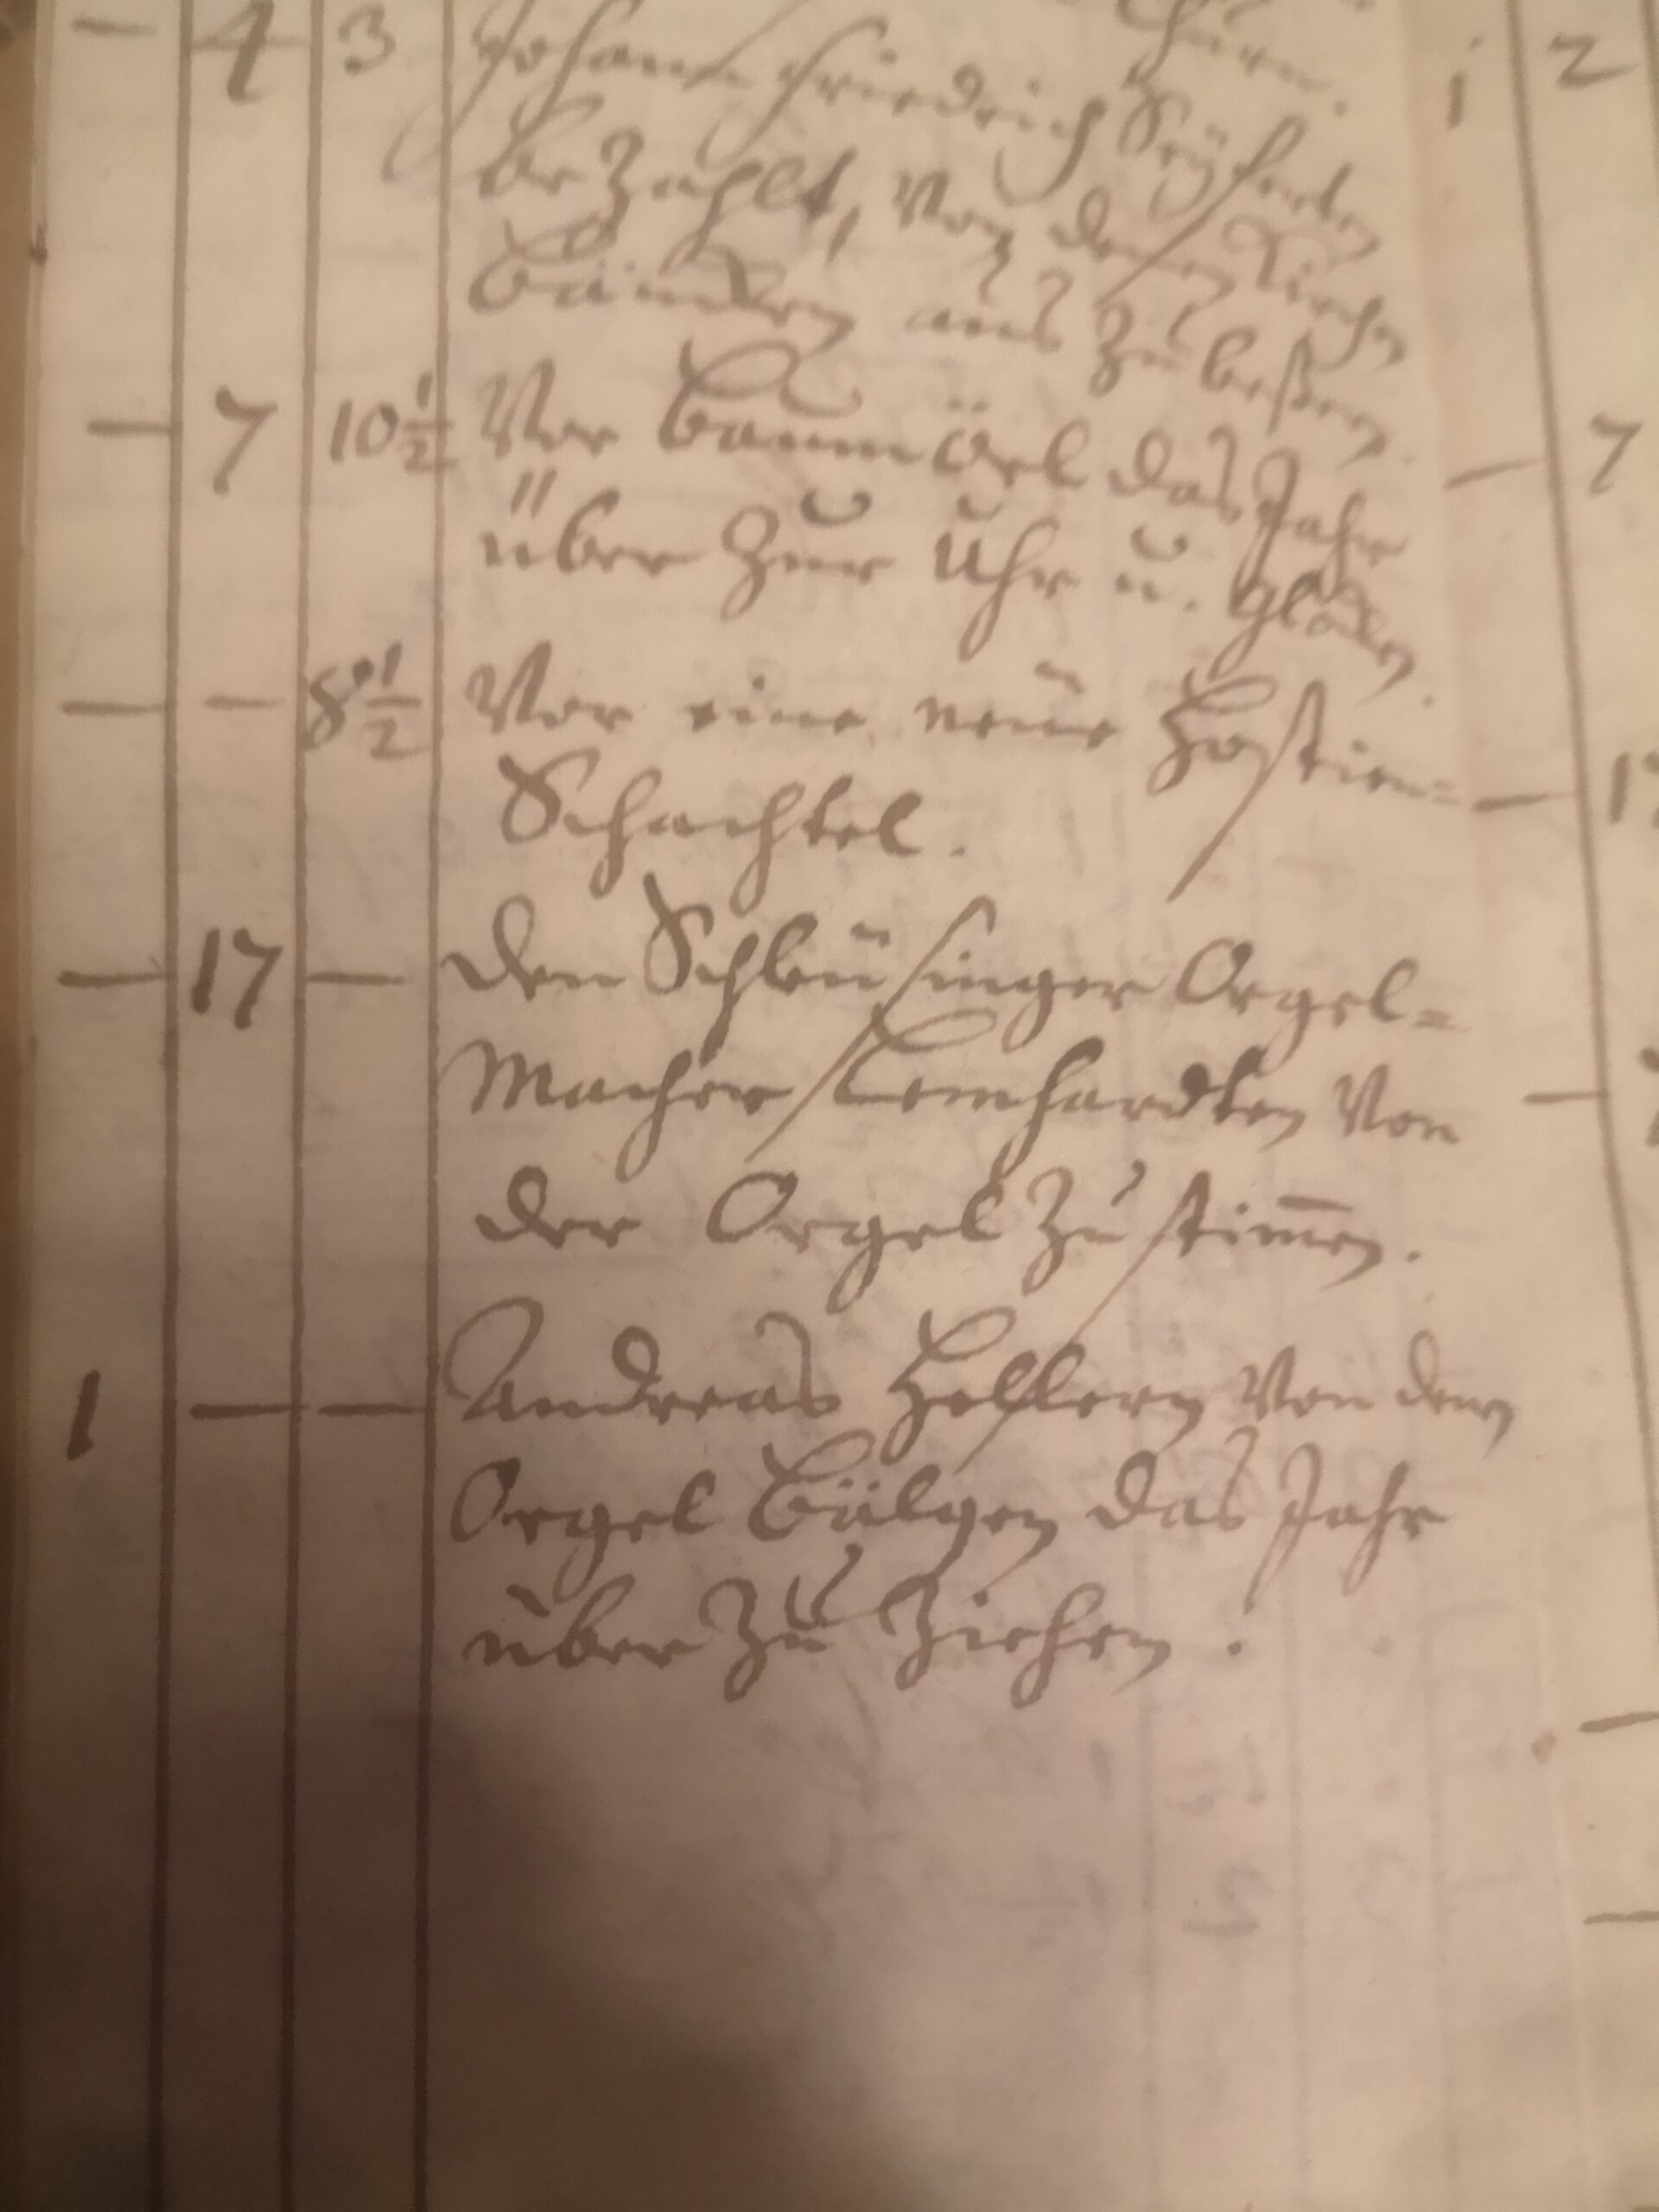 — 4 3 Johann Friedrich Seyferten i 2
bezahlt, von denen Kirchen
Bäncken aus zu beßern.
— 7 10½ Vor Baum Öel das Jahr — 7
über zur Uhr u. Glocken.
— — 8½ Vor eine neue Hostien=
Schachtel.
— 17 — den Schleusinger Orgel=
Macher Lemhardten von
der Orgel zu stim̅en.
1 — — Andreas Hellern von denen
Orgel Bälgen das Jahr
über zu Ziehen.